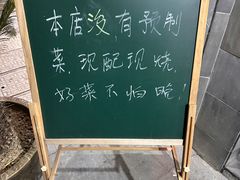 本店没有预制
菜，现配现烧，
好菜不怕晚！